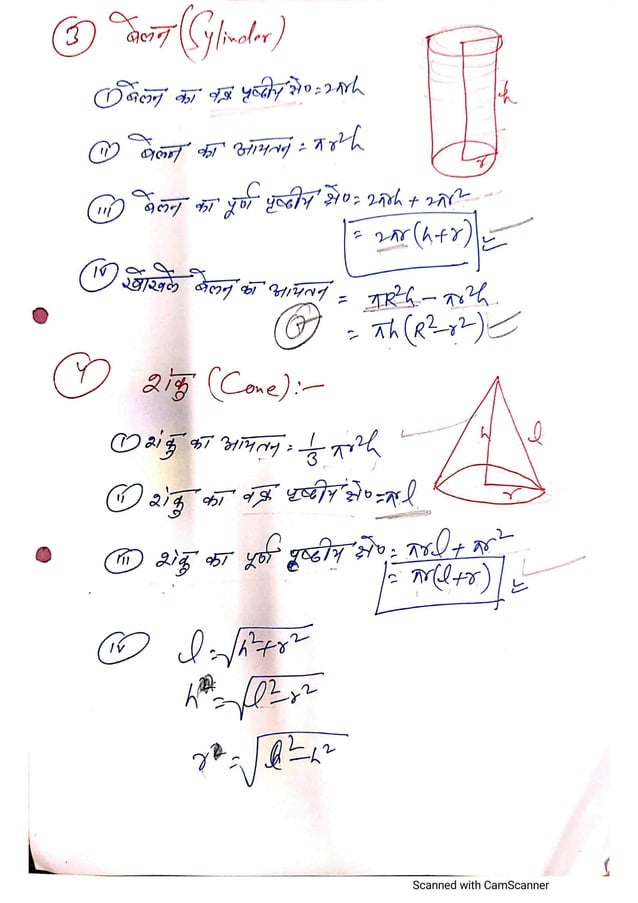 ③ बेलन (Cylinder)
h
r
(i) बेलन का वक्र पृष्ठीय क्षे० = 2πrh
(ii) बेलन का आयतन = πr²h
(iii) बेलन का पूर्ण पृष्ठीय क्षे० = 2πrh + 2πr²
= 2πr(h+r)
(iv) खोखले बेलन का आयतन = πR²h - πr²h
= πh(R²-r²)
④ शंकु (Cone):-
h
l
r
(i) शंकु का आयतन = 1/3 πr²h
(ii) शंकु का वक्र पृष्ठीय क्षे० = πrl
(iii) शंकु का पूर्ण पृष्ठीय क्षे० = πrl + πr²
= πr(l+r)
(iv) l = √h²+r²
h = √l²-r²
r = √l²-h²
Scanned with CamScanner